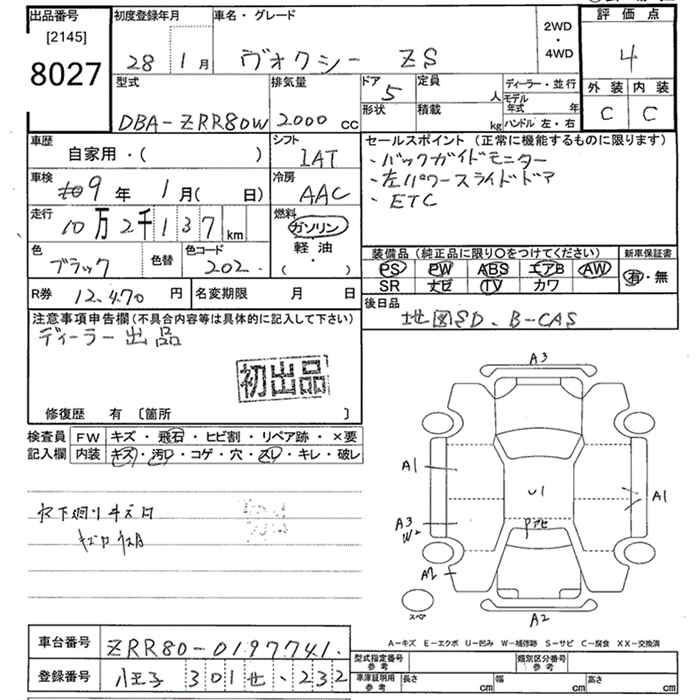 出品番号 初度登録年月 車名・グレード 2WD・4WD 評価点
[2145]
8027 28 1月 ヴォクシー ZS 4
型式 排気量 ドア 定員 ディーラー・並行 外装 内装
5 人 モデル年式 年 C C
形状 積載 kg ハンドル 左・右
DBA-ZRR80W 2000cc
車歴 シフト セールスポイント(正常に機能するものに限ります)
自家用・( ) IAT ・バックガイドモニター
車検 冷房 ・左パワースライドドア
9年 1月( 日) AAC ・ETC
走行 燃料
10万2千137km ガソリン
軽油
・( )
色 色替 色コード 装備品(純正品に限り○をつけてください) 新車保証書
ブラック 202 PS PW ABS エアB AW 有・無
SR ナビ TV カワ
R券 12,470円 名変期限 月 日 後日品
地図SD、B-CAS
注意事項申告欄(不具合内容等は具体的に記入して下さい)
ディーラー出品
初出品
修復歴 有 〔箇所 〕
検査員記入欄 FW キズ・飛石・ヒビ割・リペア跡・×要
内装 キズ・汚レ・コゲ・穴・スレ・キレ・破レ
A3
A1
U1
A1
A3
W2
Pナビ
A2
スペア
A2
A-キズ E-エクボ U-凹み W-補修跡 S-サビ C-腐食 XX-交換済
車台番号 ZRR80-0197741
型式指定番号 参考 類別区分番号 参考
登録番号 八王子 301 せ・232
車庫証明用 参考 長さ cm 幅 cm 高さ cm